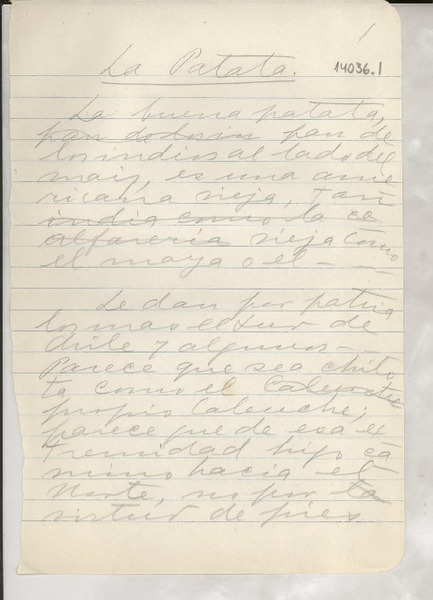 1
La Patata.
14036.1
La buena patata,
pan de
los indios al lado del
maiz, es una ame
ricana vieja, tan
india como la
alfareria vieja como
el maya o el - - -
Le dan por patria
lo mas el sur de
Chile y algunos -
Parece que sea chilo
ta como el Caleuche
propio Caleuche;
parece que de esa ex
tremidad hizo ca
mino hacia el
Norte, no por la
virtud de pies